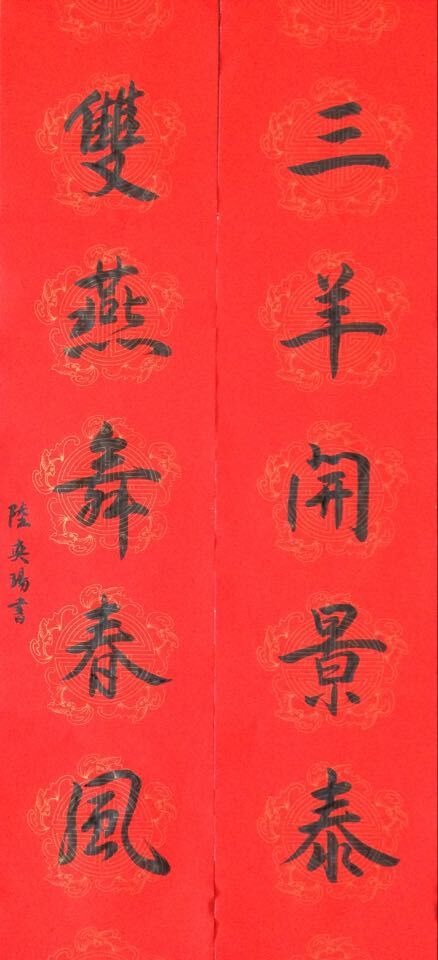 三羊開景泰
雙燕舞春風
陸奕瑒書